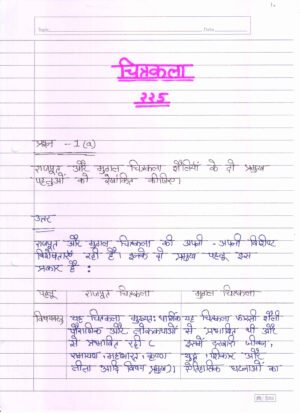 चित्रकला
२२५
प्रश्न - 1(a)
राजपूत और मुगल चित्रकला शैलियों के दो प्रमुख
पहलुओं को रेखांकित कीजिए।
उत्तर
राजपूत और मुगल चित्रकला की अपनी-अपनी विशिष्ट
विशेषताएं रही हैं। इनके दो प्रमुख पहलू इस
प्रकार हैं :
पहलू राजपूत चित्रकला मुगल चित्रकला
विषयवस्तु यह चित्रकला मुख्यतः धार्मिक यह चित्रकला फारसी शैली
पौराणिक और लोककथाओं से प्रभावित थी और
से प्रभावित रही। इसमें दरबारी जीवन,
रामायण, महाभारत, कृष्ण युद्ध, शिकार और
लीला आदि विषय प्रमुख) ऐतिहासिक घटनाओं का